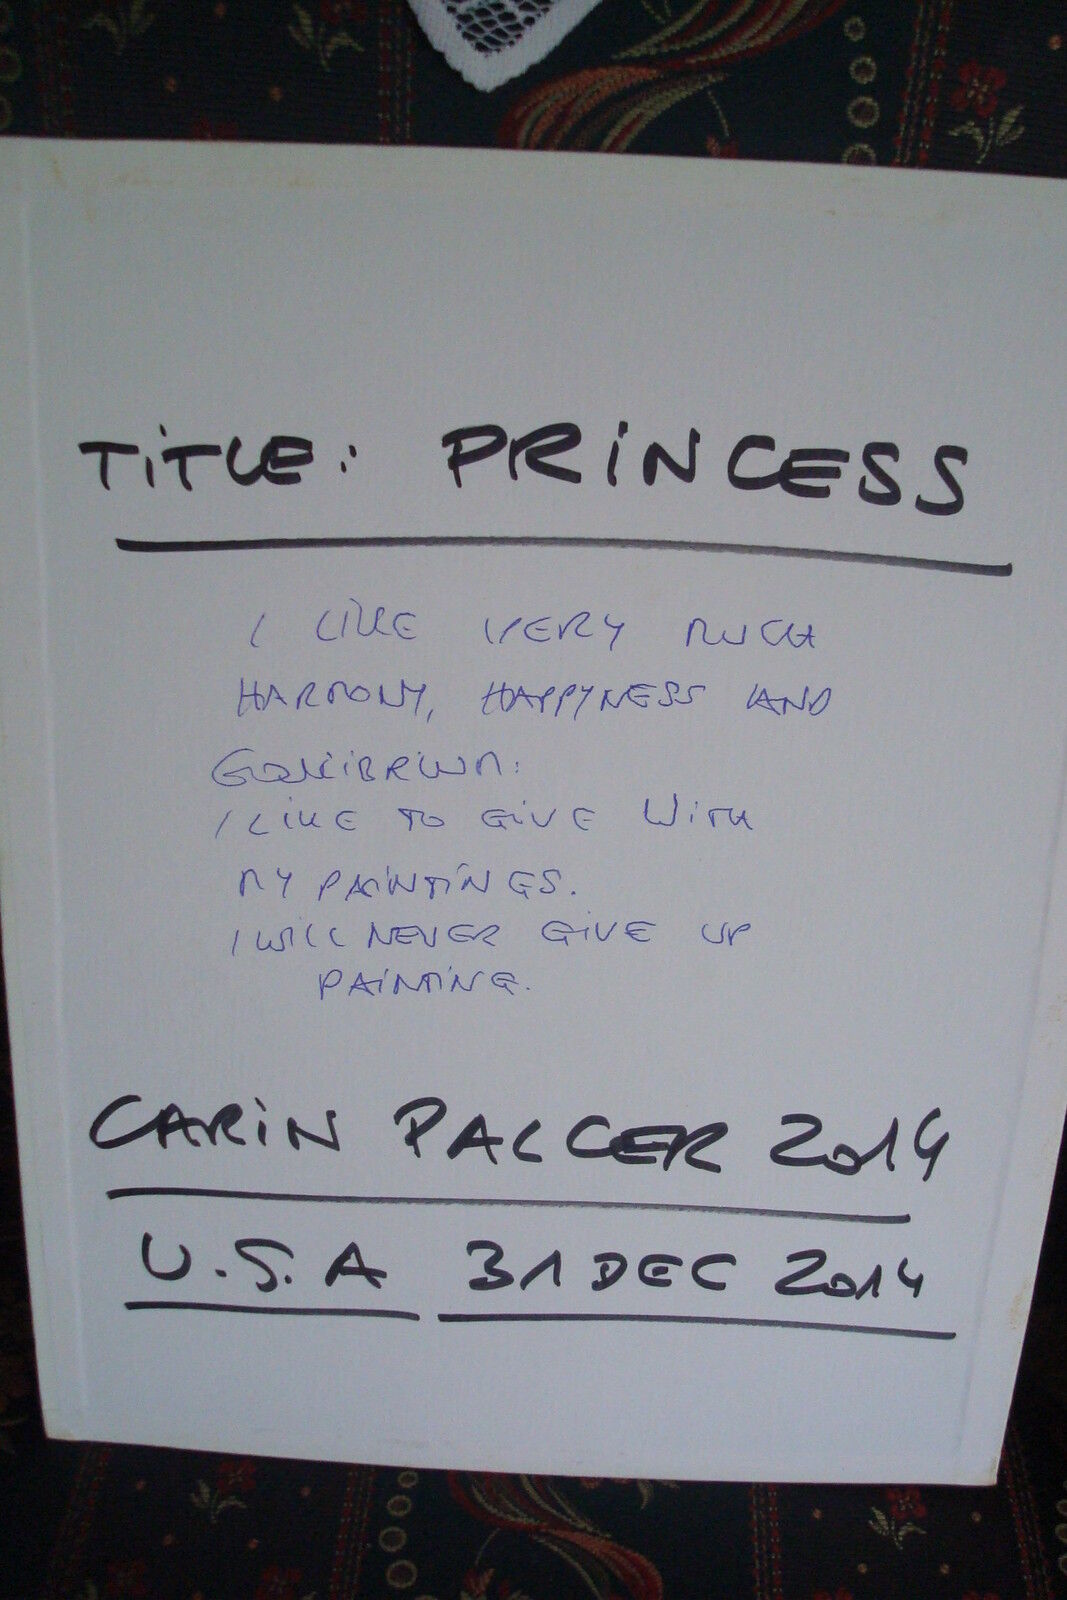 TiTLE: PRiNCESS
I LIKE VERY MUCH
HARMONY, HAPPYNESS AND
EQUILIBRIUM.
I LIKE TO GIVE WITH
MY PAINTINGS.
I WILL NEVER GIVE UP
PAINTING.
CARiN PALCER 2014
U.S.A 31 DEC 2014